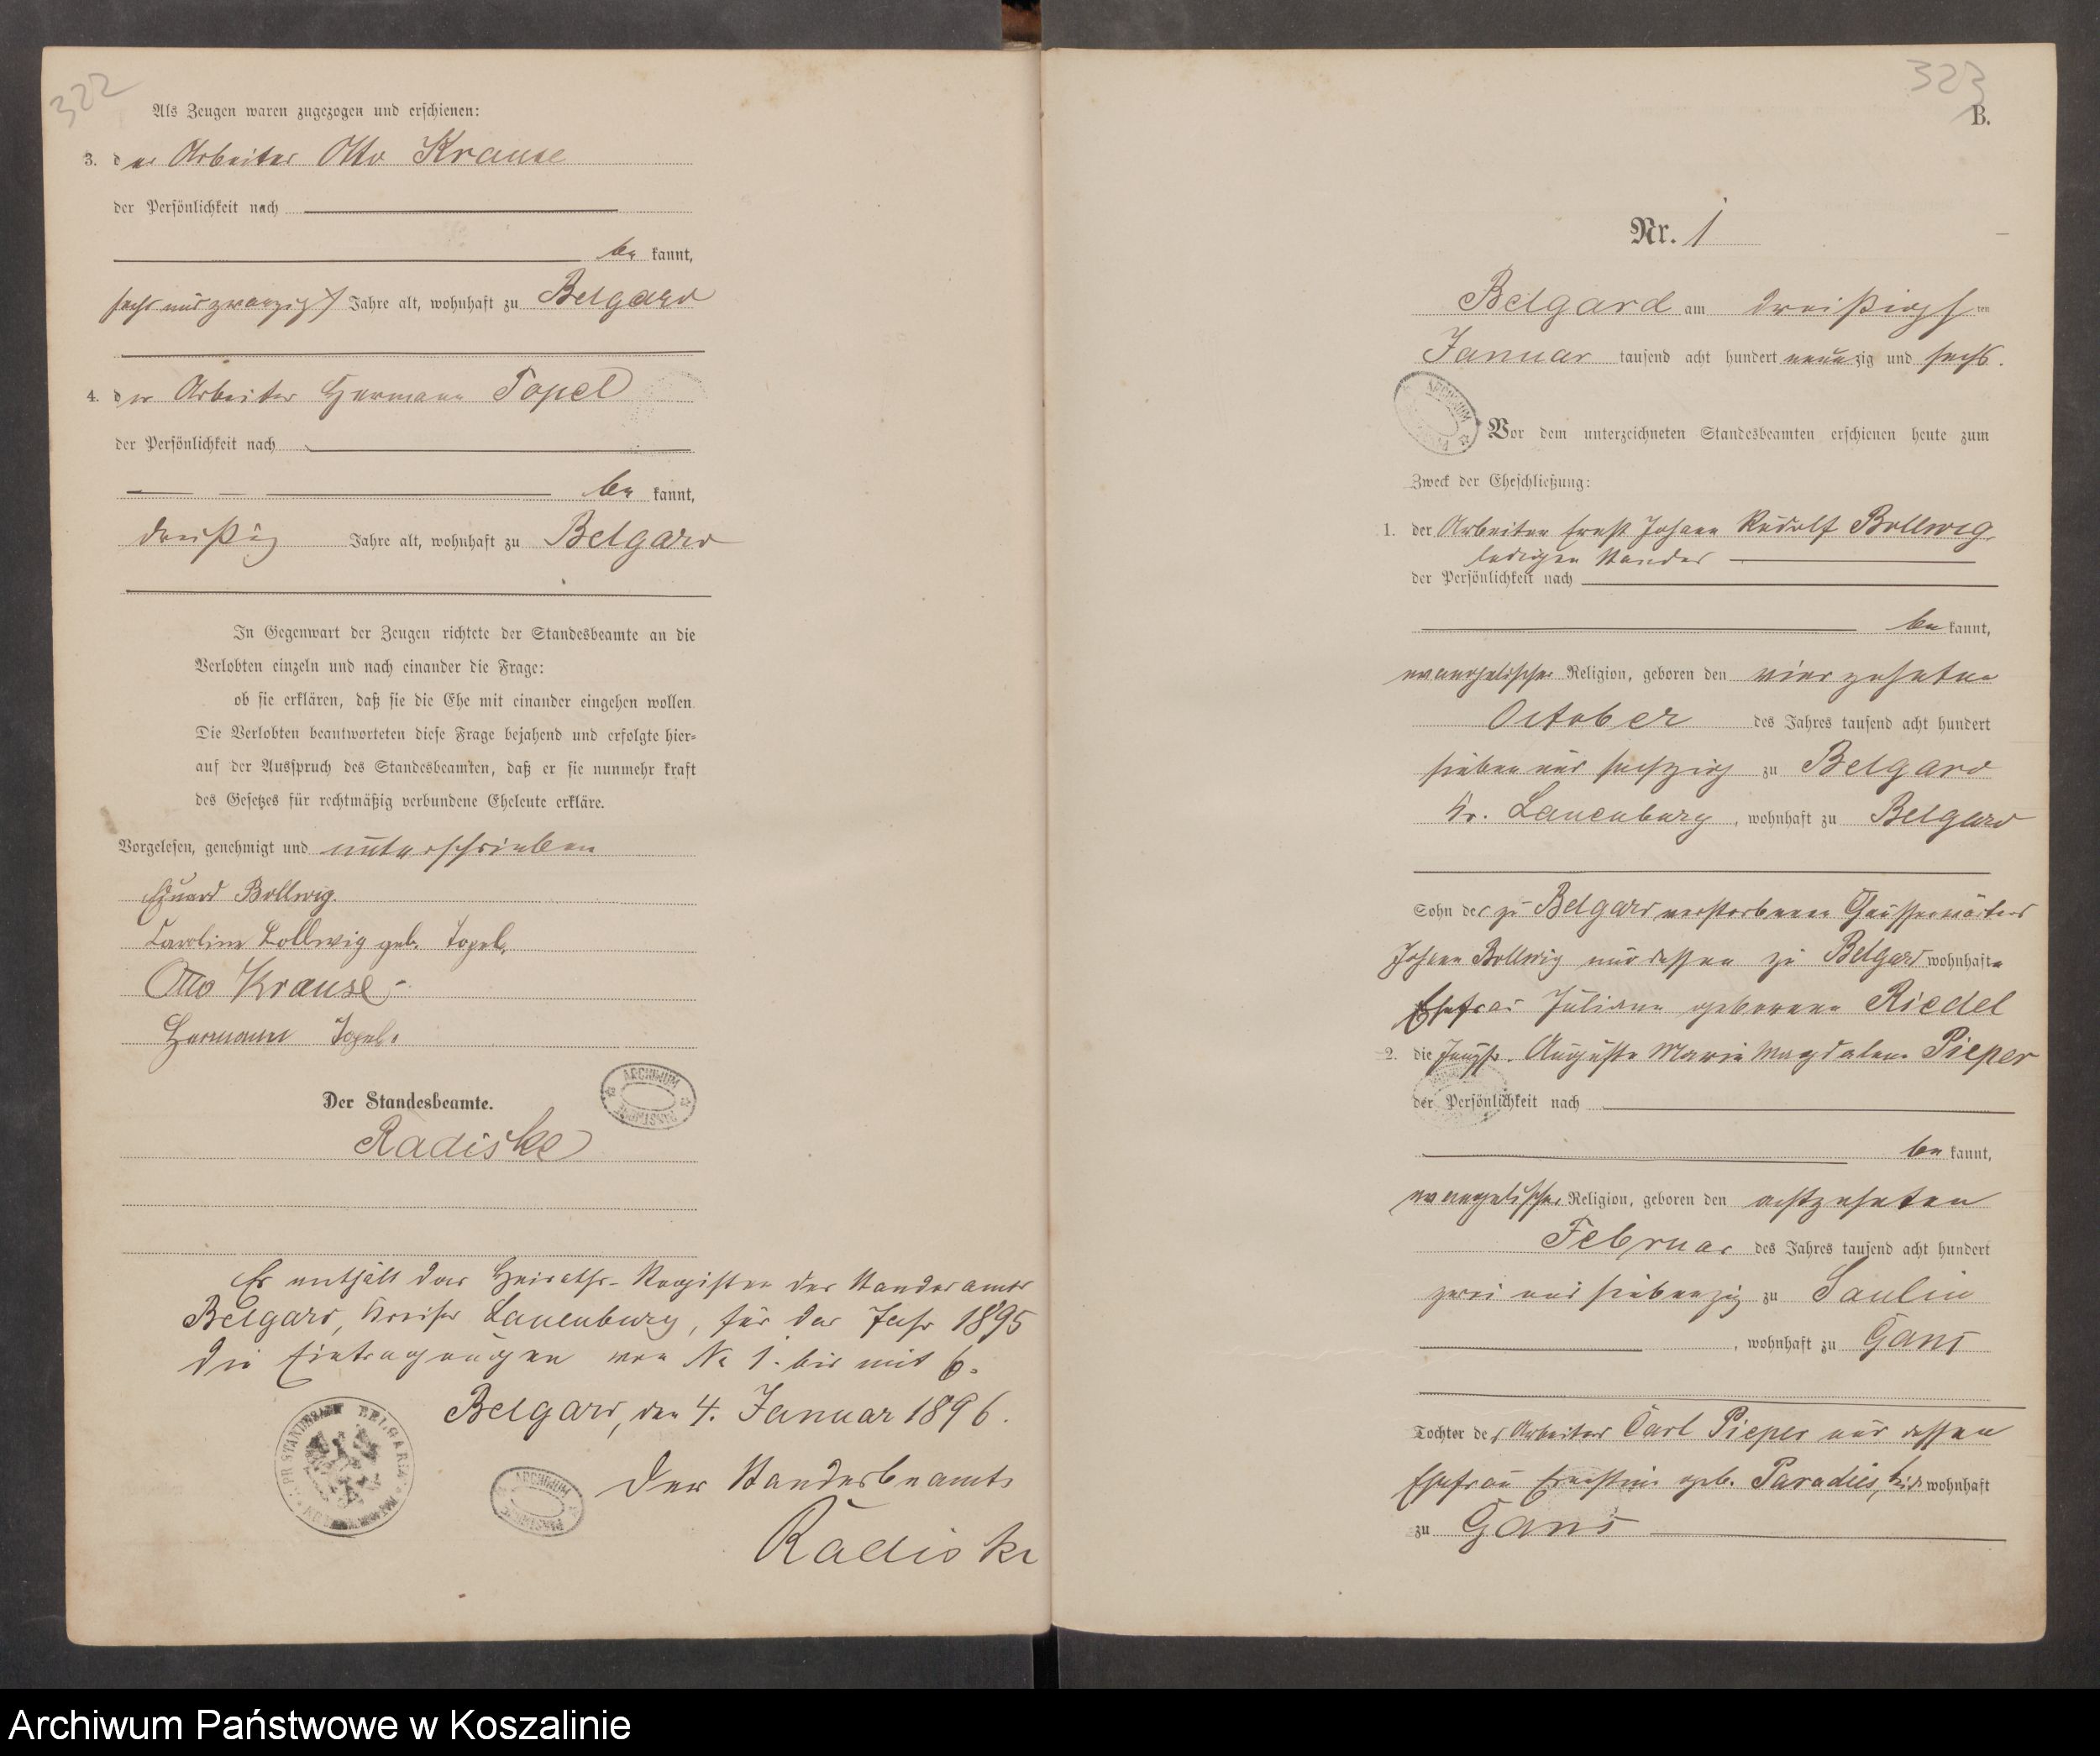 322
Als Zeugen waren zugezogen und erschienen:
3. der Arbeiter Otto Krause
der Persönlichkeit nach
be kannt,
sechs und zwanzig Jahre alt, wohnhaft zu Belgard
4. der Arbeiter Hermann Topel
der Persönlichkeit nach
be kannt,
dreißig Jahre alt, wohnhaft zu Belgard
In Gegenwart der Zeugen richtete der Standesbeamte an die
Verlobten einzeln und nach einander die Frage:
ob sie erklären, daß sie die Ehe mit einander eingehen wollen.
Die Verlobten beantworteten diese Frage bejahend und erfolgte hier=
auf der Ausspruch des Standesbeamten, daß er sie nunmehr kraft
des Gesetzes für rechtmäßig verbundene Eheleute erkläre.
Vorgelesen, genehmigt und unterschrieben
Eduard Bollwig.
Caroline Bollwig geb. Topel.
Otto Krause
Hermann Topel.
Der Standesbeamte.
Radiske
ARCHIWUM PAŃSTWOWE
Es enthält das Heiraths-Register des Standesamts
Belgard, Kreises Lauenburg, für das Jahr 1895
die Eintragungen von No 1. bis mit 6.
Belgard, den 4. Januar 1896.
Der Standesbeamte
Radiske
ARCHIWUM PAŃSTWOWE
323
B.
Nr. 1
Belgard am dreißigsten
Januar tausend acht hundert neunzig und sechs.
ARCHIWUM
Vor dem unterzeichneten Standesbeamten erschienen heute zum
Zweck der Eheschließung:
1. der Arbeiter Ernst Johann Rudolf Bollwig,
ledigen Standes
der Persönlichkeit nach
be kannt,
evangelischer Religion, geboren den vierzehnten
October des Jahres tausend acht hundert
sieben und sechzig zu Belgard
Kr. Lauenburg, wohnhaft zu Belgard
Sohn des zu Belgard verstorbenen
Johann Bollwig und dessen zu Belgard wohnhaften
Ehefrau Juliane geborenen Riedel
2. die Jungfr. Auguste Marie Magdalene Pieper
der Persönlichkeit nach
be kannt,
evangelischer Religion, geboren den achtzehnten
Februar des Jahres tausend acht hundert
zwei und siebenzig zu Saulin
, wohnhaft zu Gans
Tochter des Arbeiters Carl Pieper und dessen
Ehefrau Ernstine geb. Paradies, beide wohnhaft
zu Gans
Archiwum Państwowe w Koszalinie